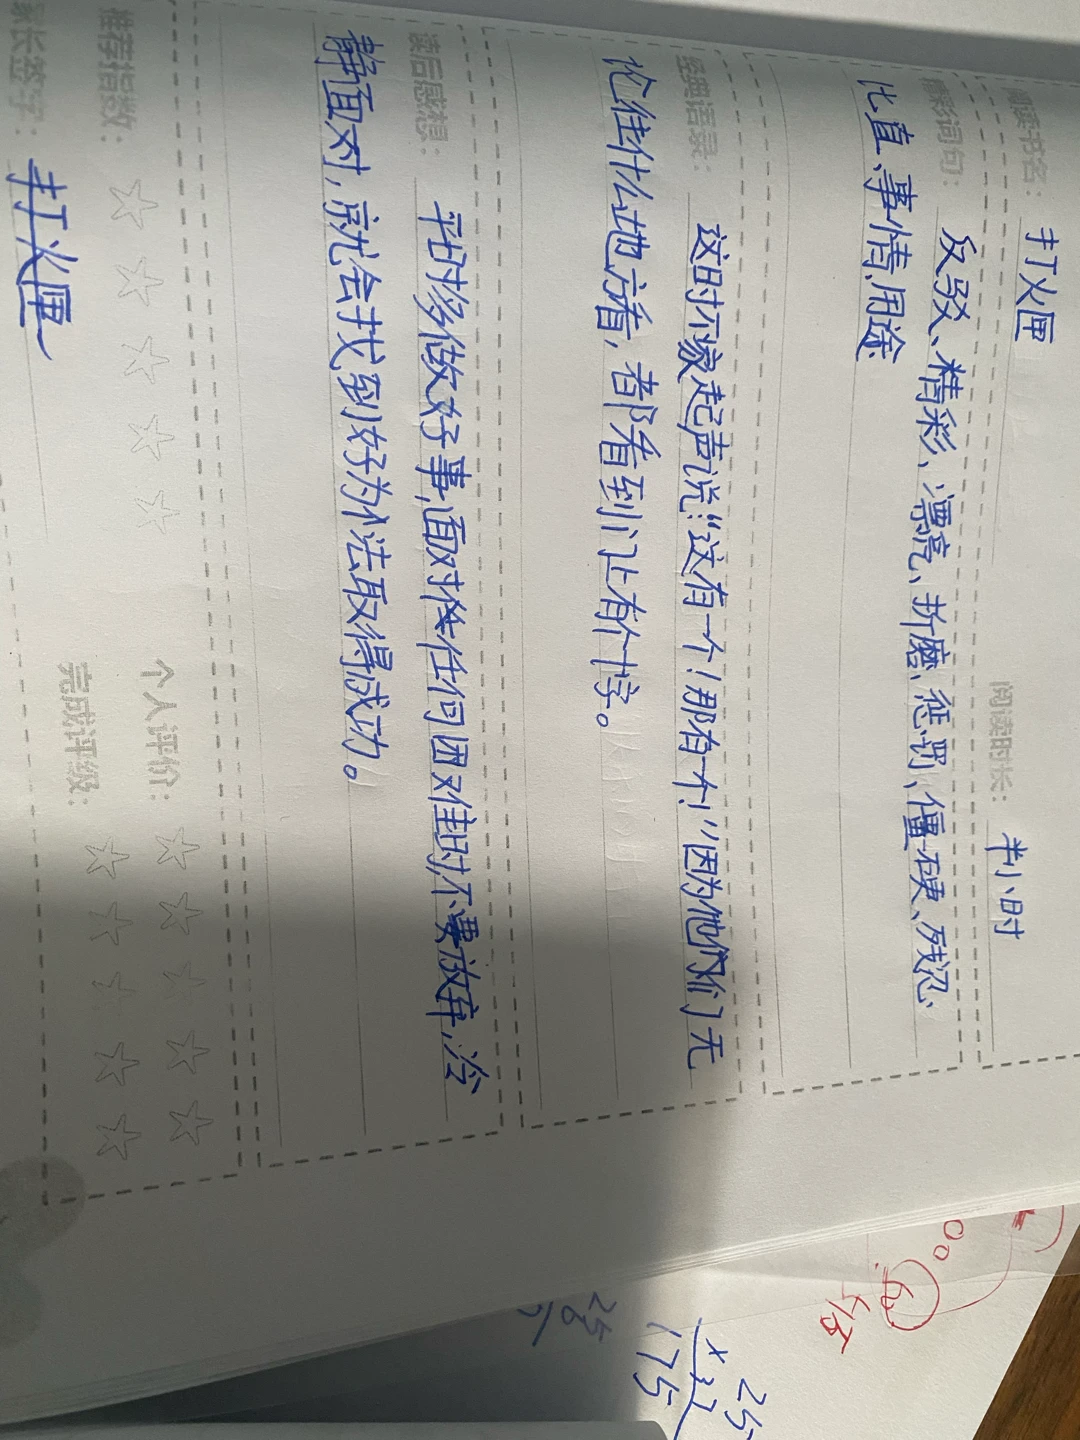 阅读书名：打火匣
阅读时长：半小时
精彩词句：反驳、精彩、漂亮、折磨、惩罚、僵硬、残忍、
比直、事情、用途
经典语录：这时不家起声说：“这有一个！那有一个！”因为他们们无
论往什么地方看，都看到门上有个十字。
读后感想：平时多做好事，面对任何困难时不要放弃，冷
静面对，就会找到好办法取得成功。
推荐指数：
个人评价：
家长签字：打火匣
完成评级：
25
175
25